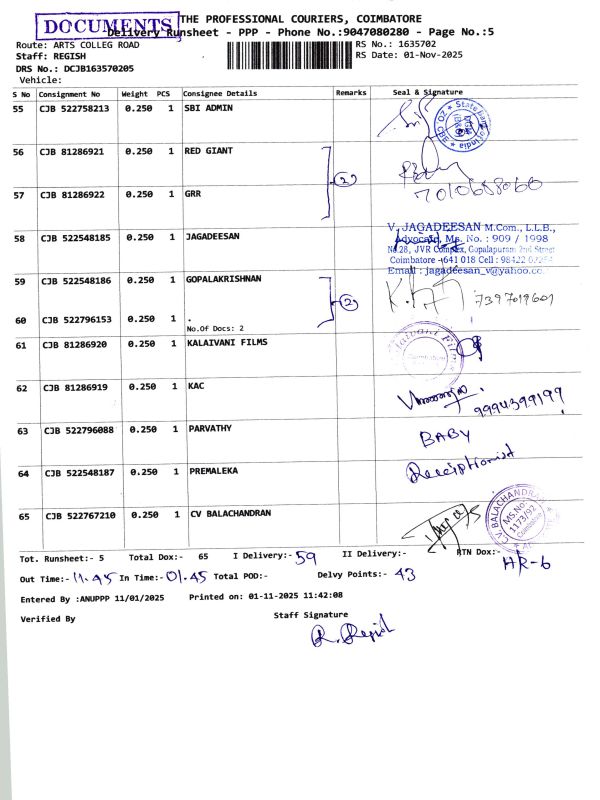 DOCUMENTS
THE PROFESSIONAL COURIERS, COIMBATORE
Delivery Runsheet - PPP - Phone No.:9047080280 - Page No.:5
Route: ARTS COLLEG ROAD RS No.: 1635702
Staff: REGISH RS Date: 01-Nov-2025
DRS No.: DCJB163570205
Vehicle:
S No Consignment No Weight PCS Consignee Details Remarks Seal & Signature
55 CJB 522758213 0.250 1 SBI ADMIN
State bank of India
56 CJB 81286921 0.250 1 RED GIANT
2
7010658060
57 CJB 81286922 0.250 1 GRR
58 CJB 522548185 0.250 1 JAGADEESAN
V. JAGADEESAN M.Com., L.L.B.,
Advocate, Ms. No. : 909 / 1998
No.28, JVR Complex, Gopalapuram 2nd Street
Coimbatore -641 018 Cell : 98422
Email : jagadeesan_v@yahoo.co.
59 CJB 522548186 0.250 1 GOPALAKRISHNAN
2 7397019601
60 CJB 522796153 0.250 1 .
No.Of Docs: 2
61 CJB 81286920 0.250 1 KALAIVANI FILMS
Kalaivani Films
Coimbatore
62 CJB 81286919 0.250 1 KAC
9994399199
63 CJB 522796088 0.250 1 PARVATHY
BABY
64 CJB 522548187 0.250 1 PREMALEKA
Receiptionist
65 CJB 522767210 0.250 1 CV BALACHANDRAN
CV. BALACHANDRAN
MS.No.
1173/92
Coimbatore
Tot. Runsheet:- 5 Total Dox:- 65 I Delivery:- 59 II Delivery:- RTN Dox:- HR-6
Out Time:- 11.45 In Time:- 01.45 Total POD:- Delvy Points:- 43
Entered By :ANUPPP 11/01/2025 Printed on: 01-11-2025 11:42:08
Verified By Staff Signature
R. Regish